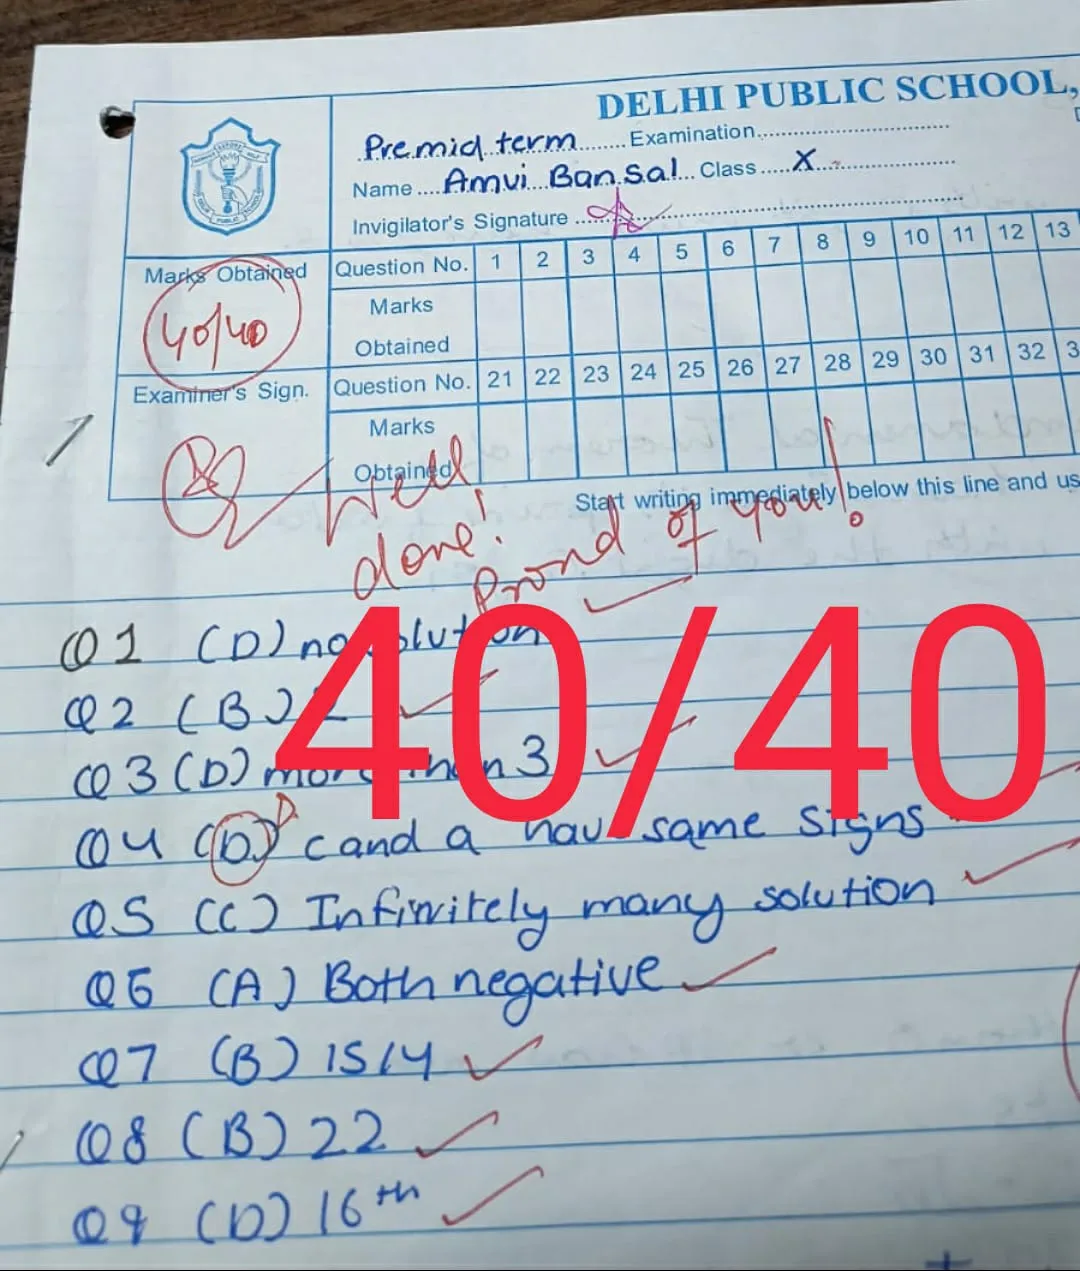 DELHI PUBLIC SCHOOL,
Premid term Examination
Name Amvi Bansal Class X
Invigilator's Signature
Marks Obtained
40/40
Question No. 1 2 3 4 5 6 7 8 9 10 11 12 13
Marks
Obtained
Examiner's Sign.
Question No. 21 22 23 24 25 26 27 28 29 30 31 32 3
Marks
Obtained
Start writing immediately below this line and us
Well
done!
Proud of you!
40/40
Q1 (D) no solution
Q2 (B)
Q3 (D) more than 3
Q4 (D) D c and a have same signs
Q5 (C) Infinitely many solution
Q6 (A) Both negative
Q7 (B) 15/4
Q8 (B) 22
Q9 (D) 16th